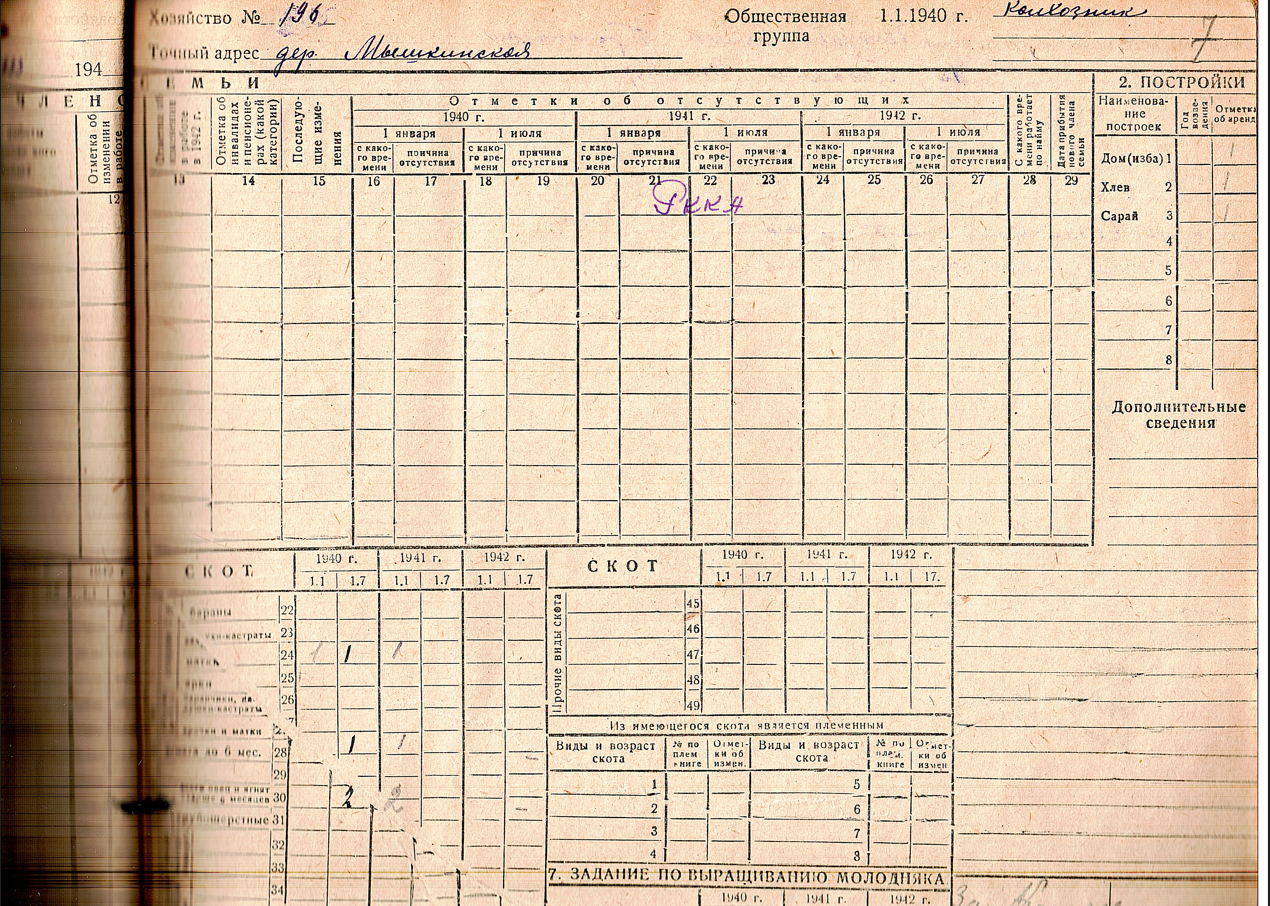 Хозяйство № 196
Общественная группа
1.1.1940 г.
Колхозник
7
Точный адрес дер. Мышкинская
194
ЕМЬИ
2. ПОСТРОЙКИ
ЧЛЕНО
Отметка об изменении в работе
12
в работе в 1942 г.
Отметка об инвалидах и пенсионерах (какой категории)
Последующие изменения
Отметки об отсутствующих
1940 г. 1941 г. 1942 г.
1 января 1 июля 1 января 1 июля 1 января 1 июля
с како-го вре-мени причина отсутствия с како-го вре-мени причина отсутствия с како-го вре-мени причина отсутствия с како-го вре-мени причина отсутствия с како-го вре-мени причина отсутствия с како-го вре-мени причина отсутствия
С какого вре-мени работает по найму
Дата прибытия нового члена семьи
13 14 15 16 17 18 19 20 21 22 23 24 25 26 27 28 29
РККА
Наименова-ние построек
Год возве-дения
Отметк об аренд
Дом(изба) 1 1
Хлев 2 1
Сарай 3 1
4
5
6
7
8
Дополнительные сведения
СКОТ
1940 г. 1941 г. 1942 г.
1.1 1.7 1.1 1.7 1.1 1.7
бараны 22
-кастраты 23
матки 24 1 1 1
ярки 25
26
и матки
до 6 мес. 28 1 1
29
месяцев 30 2 2
грубошерстные 31
32
33
34
СКОТ
1940 г. 1941 г. 1942 г.
1.1 1.7 1.1 1.7 1.1 17.
Прочие виды скота
45
46
47
48
49
Из имеющегося скота является племенным
Виды и возраст скота № по плем книге Отмет-ки об измен. Виды и возраст скота № по плем. книге Отмет-ки об измен
1 5
2 6
3 7
4 8
7. ЗАДАНИЕ ПО ВЫРАЩИВАНИЮ МОЛОДНЯКА
1940 г. 1941 г. 1942 г.